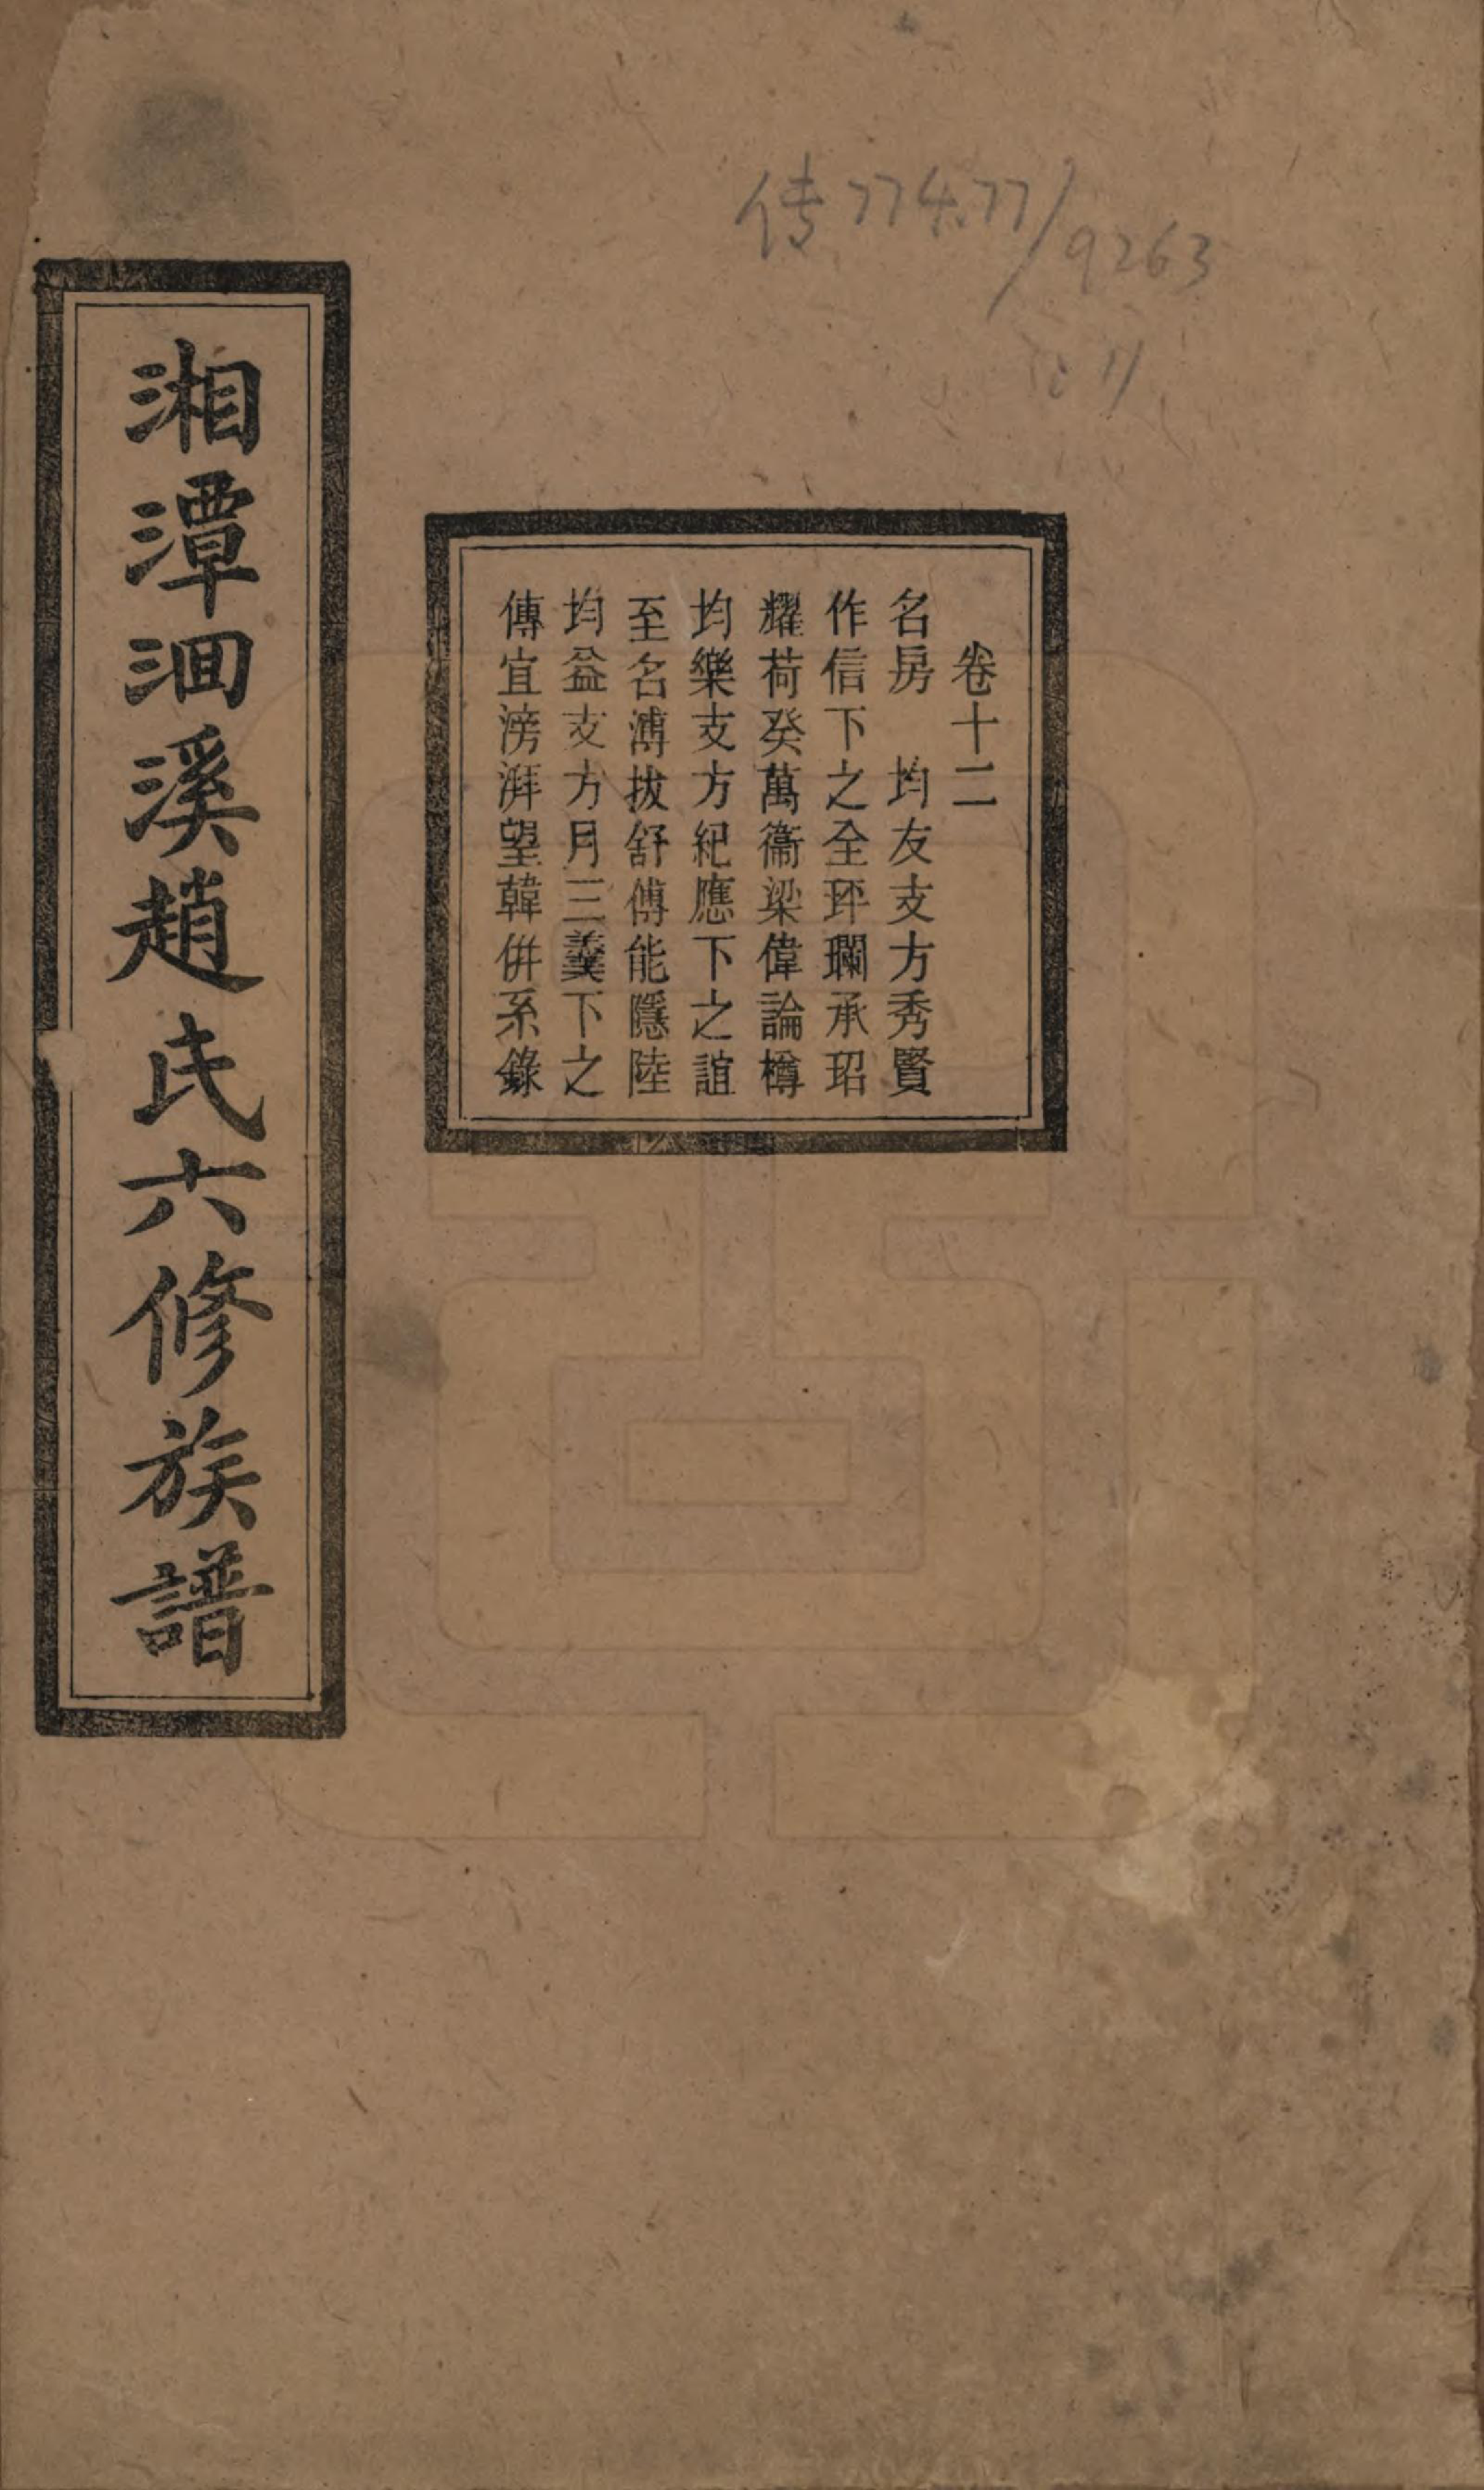 传774.77/9263
:11
卷十二
名房　均友支方秀賢
作信下之全玶瓓承玿
耀荷癸萬衞梁偉論樽
均樂支方紀應下之誼
至名溥拔舒傅能隱陸
均益支方月三羲下之
傳宜滂湃望韓併系錄
湘潭泗溪趙氏六修族譜